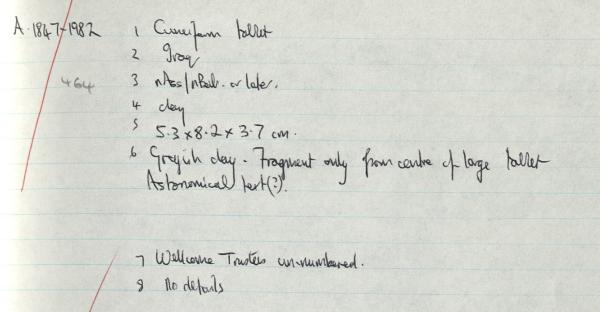 A.1847-1982 1 Cuneiform tablet
2 Iraq
464 3 nAss/nBab. or later.
4 clay
5 5.3 x 8.2 x 3.7 cm.
6 Greyish clay. Fragment only from centre of large tablet
Astonomical text(?).
7 Wellcome Trustees un-numbered.
8 no details